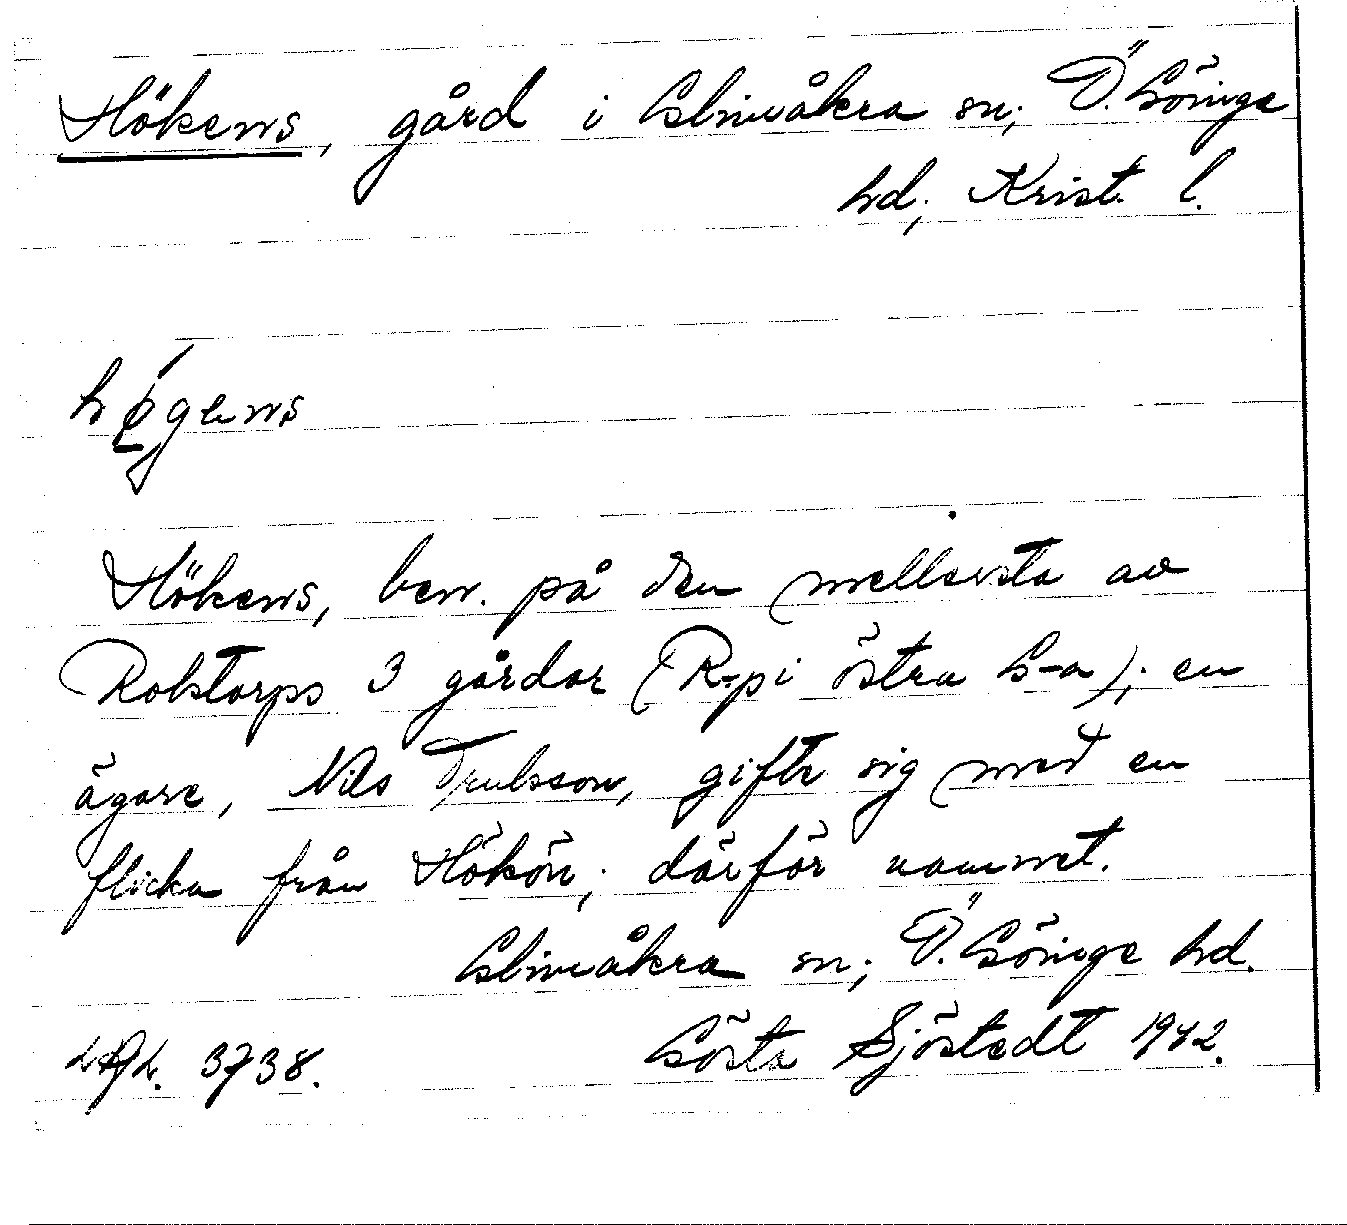 Hökens, gård i Glimåkra sn; Ö. Göinge
hd; Krist. l.
høgens
Hökens, ben. på den mellersta av
Rolstorps 3 gårdar (R-p i östra G-a); en
ägare, Nils Trulsson, gifte sig med en
flicka från Hökön; därför namnet.
Glimåkra sn; Ö. Göinge hd.
3738. Gösta Sjöstedt 1942.